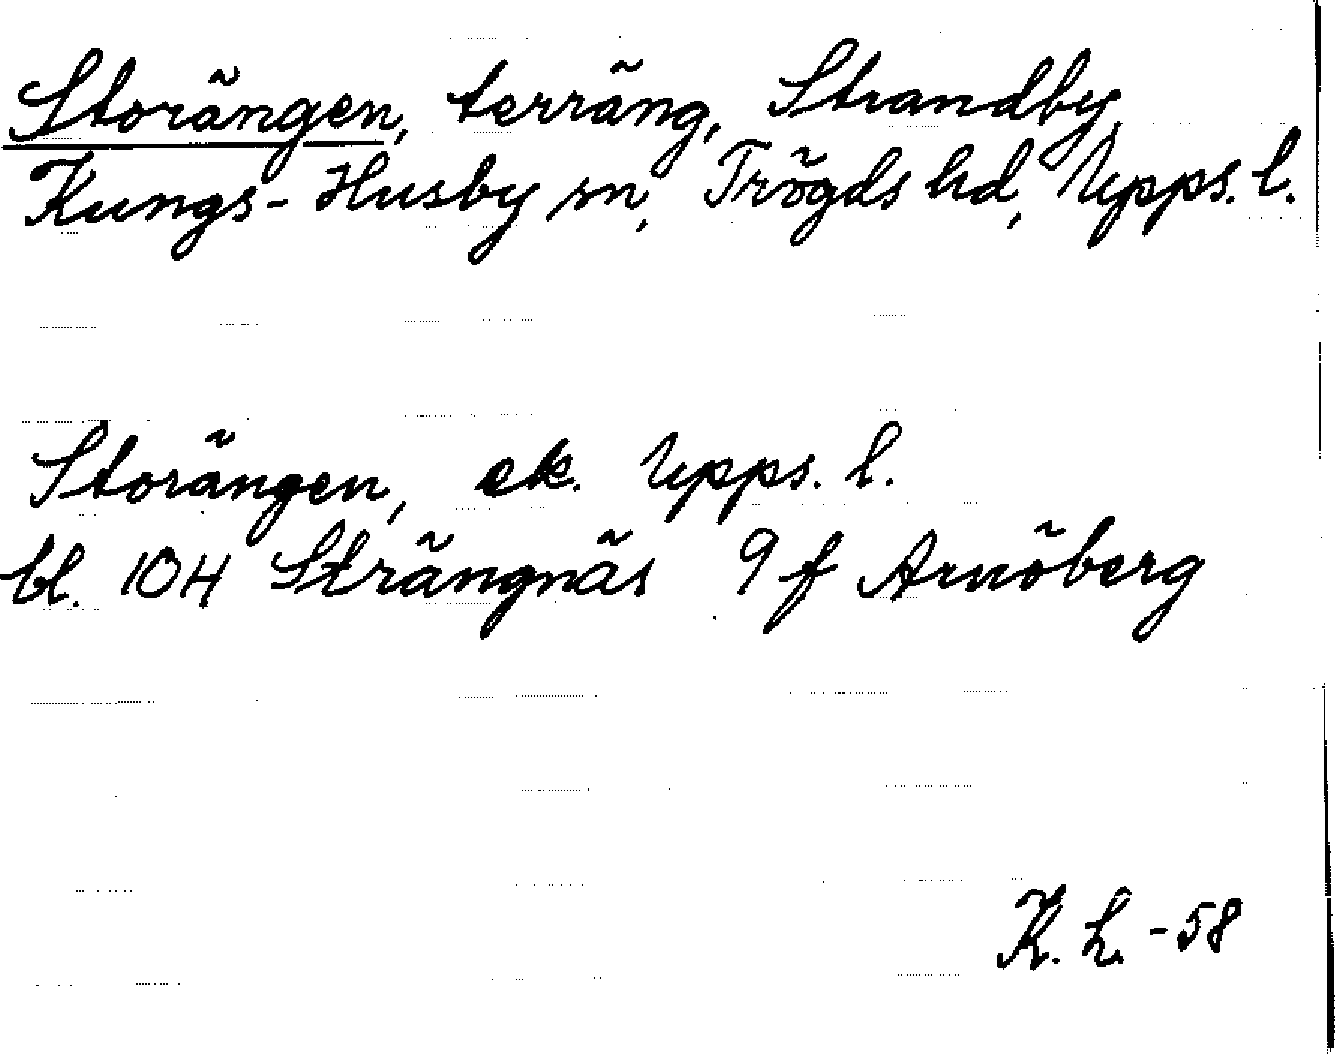 Storängen, terräng, Strandby,
Kungs-Husby sn, Trögds hd, Upps. l.
Storängen, ek. Upps. l.
bl. 104 Strängnäs 9 f Arnöberg
K. L. -58